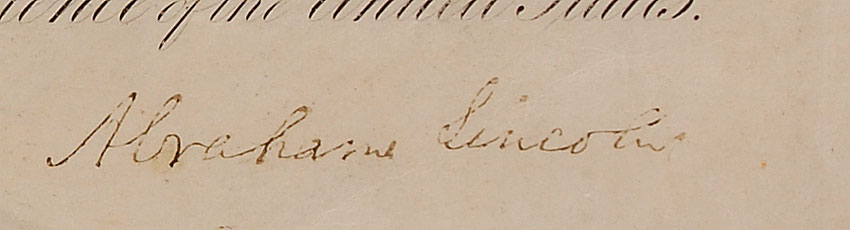 of the United States.
Abraham Lincoln